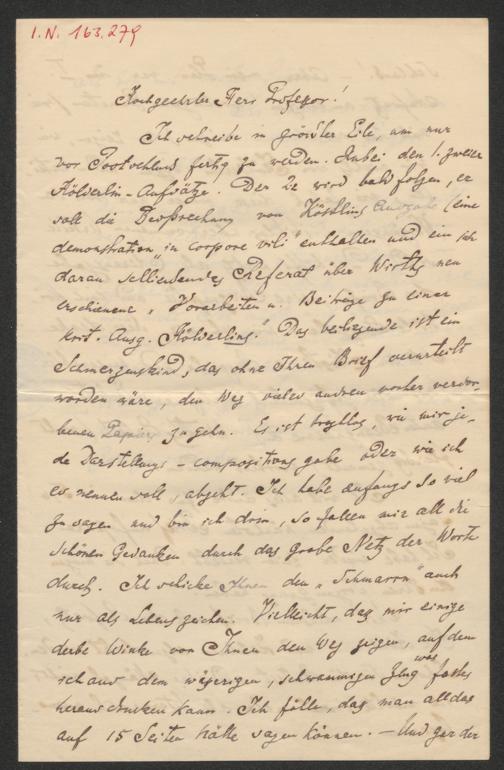 I.N. 163.279
Hochgeehrter Herr Professor!
Ich schreibe in größter Eile, um nur
vor Postschluss fertig zu werden. Anbei den 1. zweier
Hölderlin-Aufsätze. Der 2te wird bald folgen, er
soll die Besprechung von Köstlins Ausgabe (eine
demonstration „in corpore vili“ enthalten und ein sich
daran schließendes Referat über Wirths neu
erschienene „Vorarbeiten u. Beiträge zu einer
krit. Ausg. Hölderlins.“ Das beiliegende ist ein
Schmerzenskind, das ohne Ihren Brief verurteilt
worden wäre, den Weg vieles andren vorher verdor-
benen Papiers zu gehn. Es ist trostlos, wie mir je-
de Darstellungs-compositions gabe oder wie ich
es nennen soll, abgeht. Ich habe anfangs so viel
zu sagen und bin ich drin, so fallen mir all die
schönen Gedanken durch das grobe Netz der Worte
durch. Ich schicke Ihnen den „Schmarrn“ auch
nur als Lebenszeichen. Vielleicht, daß mir einige
derbe Winke von Ihnen den Weg zeigen, auf dem
ich aus dem wässerigen, schwammigen Zeug was festes
heraus drucken kann. Ich fühle, daß man all das
auf 15 Seiten hätte sagen können. — Und gar der